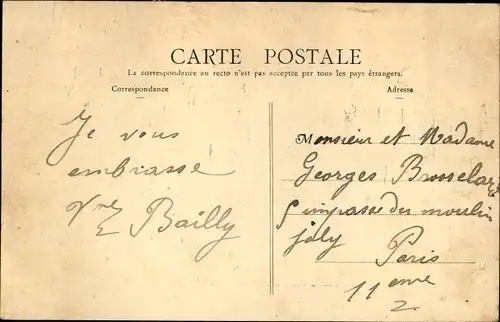 CARTE POSTALE
La correspondance au recto n'est pas acceptée par tous les pays étrangers.
Correspondance
Adresse
Je vous
embrasse
Bailly
Monsieur et Madame
Georges
impasse du moulin
joly Paris
11eme